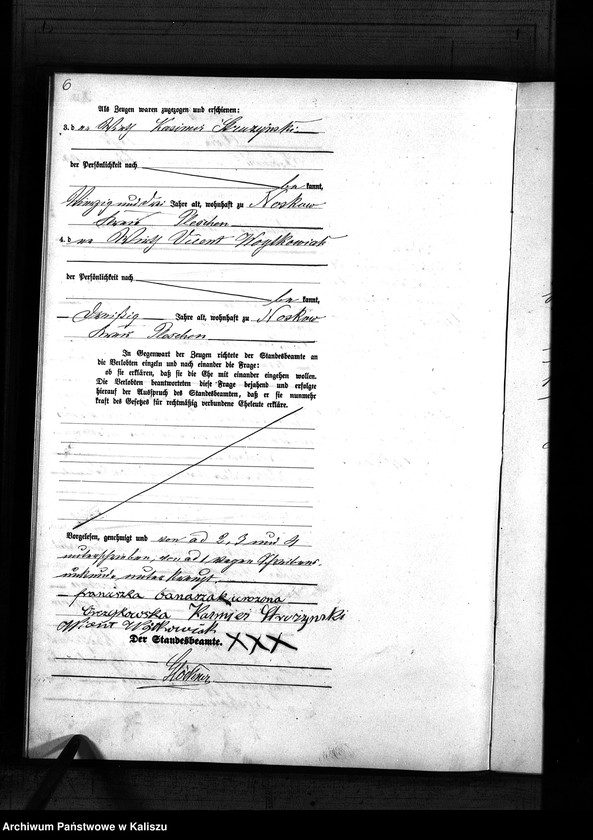 6
Als Zeugen waren zugezogen und erschienen:
3. der Wirth Kasimir Struzynski
der Persönlichkeit nach
be kannt,
Vierzig und drei Jahre alt, wohnhaft zu Noskow
Kreis Pleschen
4. der Wirth Vicent Woytkowiak
der Persönlichkeit nach
be kannt,
Dreißig Jahre alt, wohnhaft zu Noskow
Kreis Pleschen
In Gegenwart der Zeugen richtete der Standesbeamte an
die Verlobten einzeln und nach einander die Frage:
ob sie erklären, daß sie die Ehe mit einander eingehen wollen.
Die Verlobten beantworteten diese Frage bejahend und erfolgte
hierauf der Ausspruch des Standesbeamten, daß er sie nunmehr
kraft des Gesetzes für rechtmäßig verbundene Eheleute erkläre.
Vorgelesen, genehmigt und von ad 2, 3 und 4
unterschrieben, von ad 1 wegen Schreibens-
unkunde unterkreuzt.
franciszka banaszak urozona
Kazmiersz Struzynski
Wojtkowiak
Der Standesbeamte. XXX
Archiwum Państwowe w Kaliszu